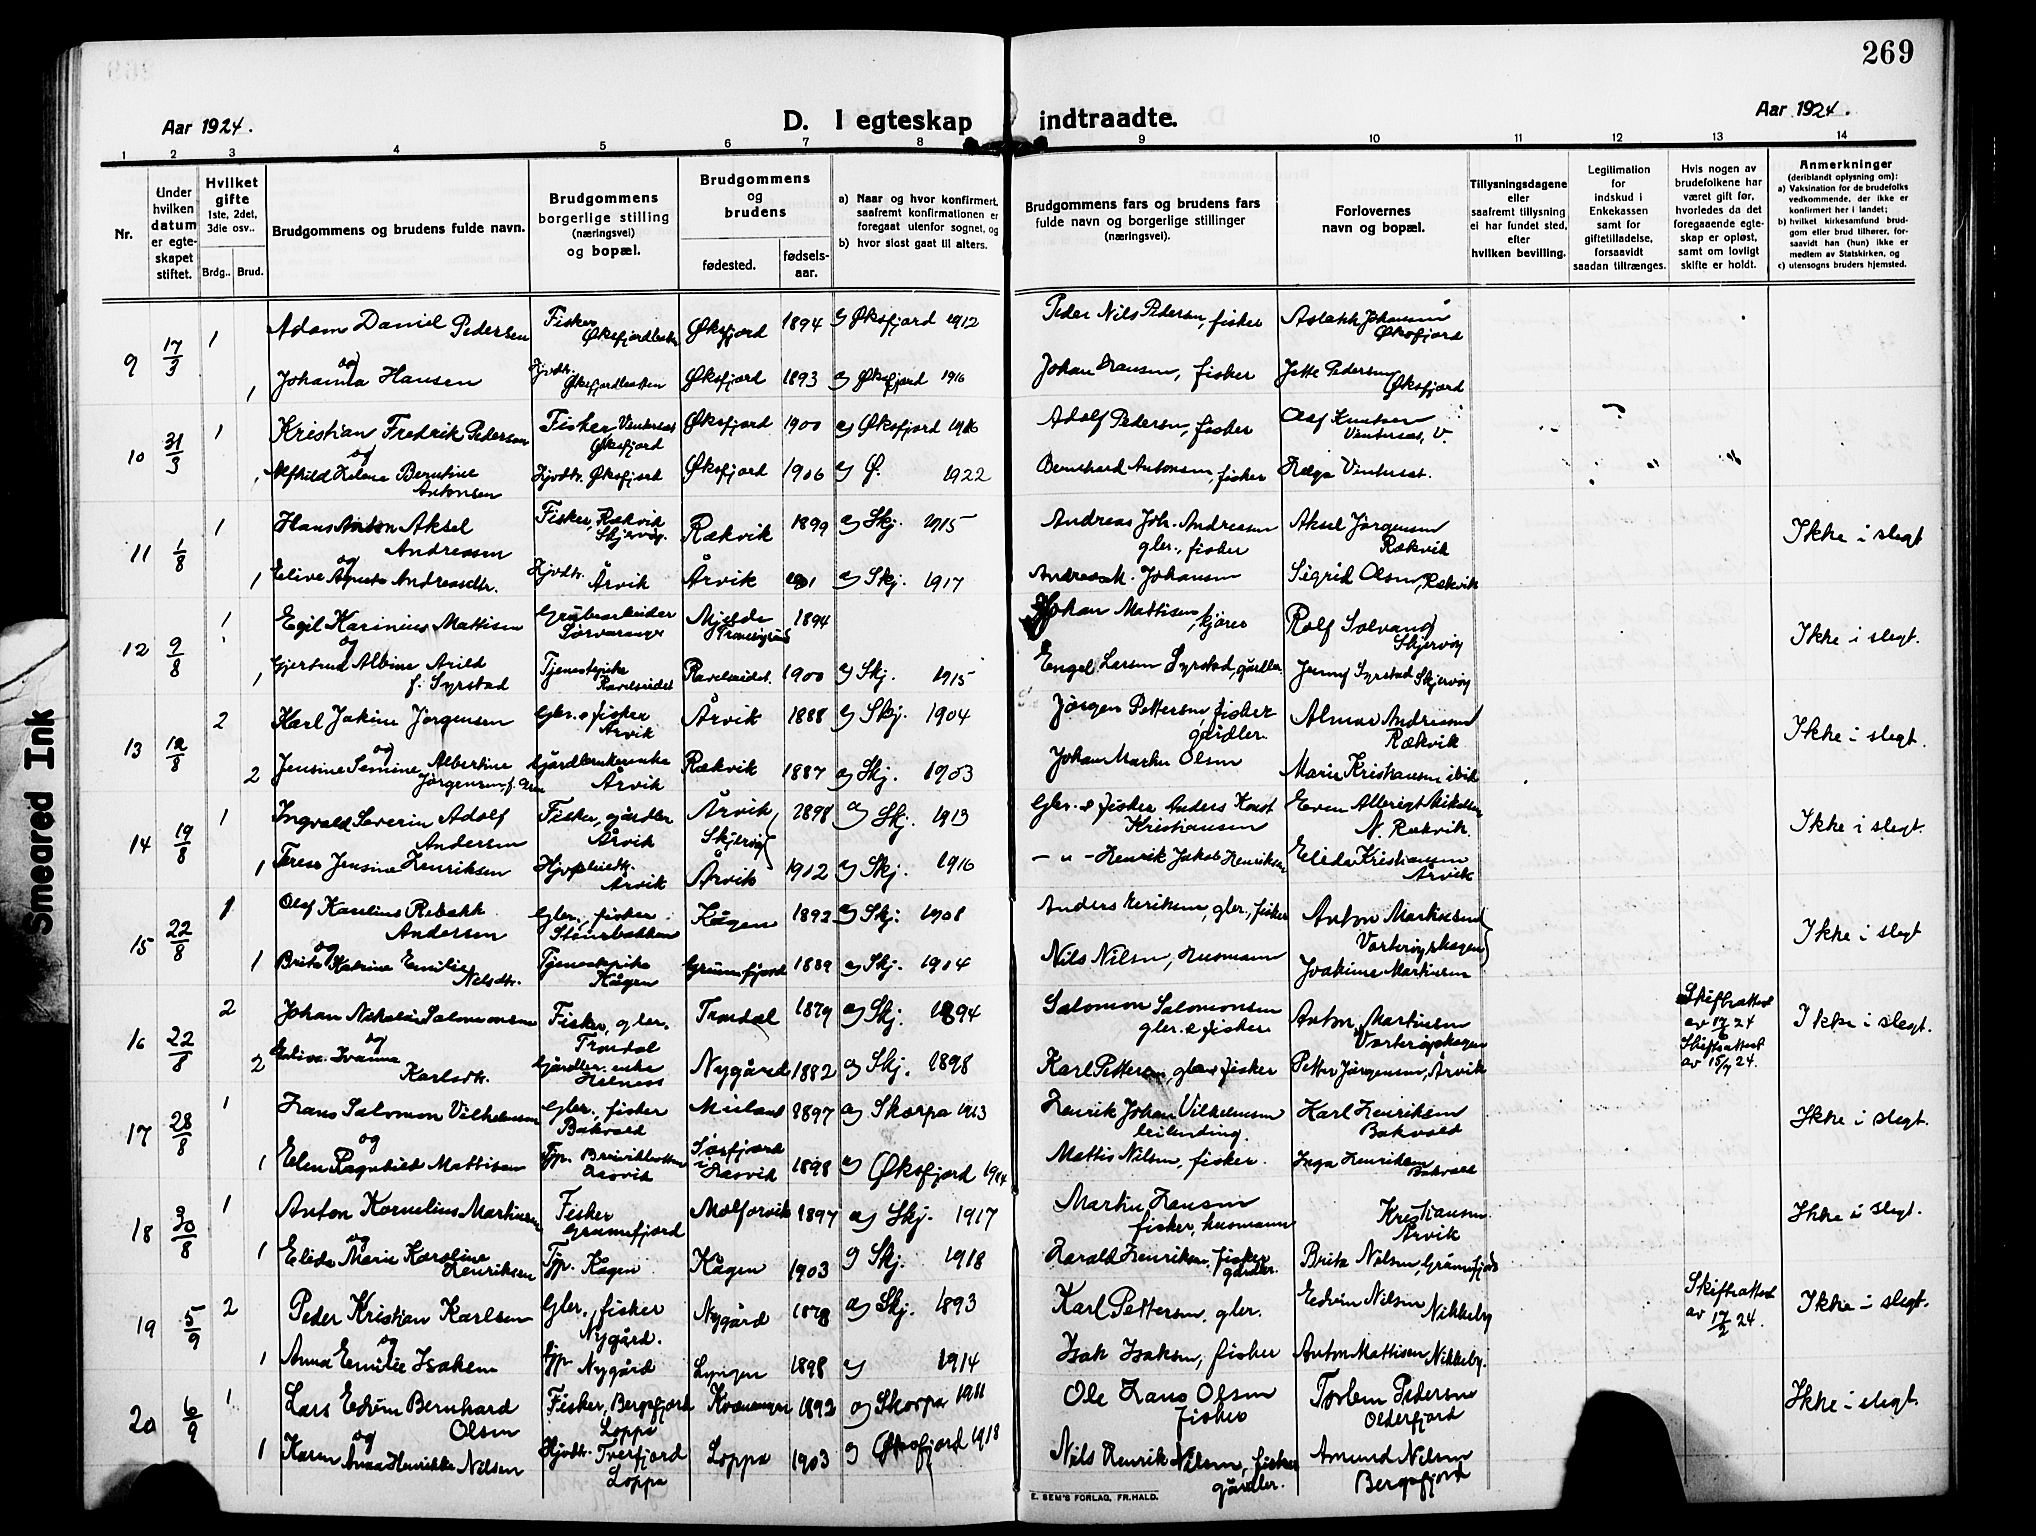 269
Aar 1924.
D. I egteskap indtraadte.
Aar 1924.
1 2 3 4 5 6 7 8 9 10 11 12 13 14
Nr.
Under hvilken datum er egteskapet stiftet.
Hvilket gifte 1ste, 2det, 3die osv..
Brdg.. Brud.
Brudgommens og brudens fulde navn.
Brudgommens borgerlige stilling (næringsvei) og bopæl.
Brudgommens og brudens
fødested. fødselsaar.
a) Naar og hvor konfirmert, saafremt konfirmationen er foregaat utenfor sognet, og
b) hvor sidst gaat til alters.
Brudgommens fars og brudens fars fulde navn og borgerlige stillinger (næringsvei).
Forlovernes navn og bopæl.
Tillysningsdagene eller saafremt tillysning ei har fundet sted, efter hvilken bevilling.
Legitimation for indskud i Enkekassen samt for giftetilladelse, forsaavidt saadan tiltrænges.
Hvis nogen av brudefolkene har været gift før, hvorledes da det foregaaende egteskap er opløst, samt om lovligt skifte er holdt.
Anmerkninger (deriblandt oplysning om):
a) Vaksination for de brudefolks vedkommende, der ikke er konfirmert her i landet;
b) hvilket kirkesamfund brudgom eller brud tilhører, forsaavidt han (hun) ikke er medlem av Statskirken, og
c) utensogns bruders hjemsted.
9 17/3 1 Adam Daniel Pedersen Fisker Øksfjord 1894 a) Øksfjord 1912 Peder Nils Pedersen, fisker Aslakk Johansen Øksfjord
og
1 Johanna Hansen Hjvdtr. Øksfjordbotten Øksfjord 1893 a) Øksfjord 1916 Johan Hansen, fisker Jette Pedersen Øksfjord
10 31/3 1 Kristian Fredrik Pedersen Fisker Øksfjord Øksfjord 1900 a) Øksfjord 1916 Adolf Pedersen, fisker Olaf Knutsen
og
1 Alfhild Helene Berntine Antonsen Hjvdtr. Øksfjord Øksfjord 1906 a) Ø. 1922 Bernhard Antonsen, fisker Helga
11 1/8 1 Hans Anton Aksel Andreassen Fisker, Rækvik Skjervøy. Rækvik 1899 a) Skj. 1915 Andreas Joh. Andreassen gbr., fisker Aksel Jørgensen Rækvik Ikke i slegt
og
1 Elive Agnete Andreasdtr. Hjvdtr. Årvik Årvik 1901 a) Skj. 1917 Andreas M. Johansen Sigrid Olsen, Rækvik
12 9/8 1 Egil Karinius Mattisen Grubearbeider Sørvaranger Mjelde 1894 Johan Mattisen, kjører Rolf Solvang Skjervøy Ikke i slegt.
og
1 Gjertrud Albine Arild f. Syrstad Tjenestepike Ravelseidet Ravelseidet. 1900 a) Skj. 1915 Engel Larsen Syrstad, gårdbr. Jenny Syrstad Skjervøy
13 12/8 2 Karl Jakim Jørgensen Gbr. & fisker Årvik Årvik 1888 a) Skj. 1904 Jørgen Pettersen, fisker gårdbr. Almar Andreassen Rækvik Ikke i slegt.
og
2 Jensine Semine Albertine Jørgensen f. Gårdbrukerenke Årvik Rækvik 1887 a) Skj. 1903 Johan Martin Olsen Marie Kristiansen ibid
14 19/8 1 Ingvald Severin Adolf Andersen Fisker, gårdbr Årvik Årvik, Skjervøy 1898 a) Skj. 1913 Gbr. & fisker Anders Kristiansen Even Albrigt Mikkelsen N. Rækvik. Ikke i slegt.
1 Terese Jensine Henriksen Årvik Årvik 1902 a) Skj. 1916 — " — Henrik Jakob Henriksen Elida Kristiansen Årvik
15 22/8 1 Olaf Karelius Rebekk Andersen Gbr., fisker Kågen 1892 a) Skj. 1908 Anders Eriksen, gbr., fisker Anton Martinsen Ikke i slegt
og
1 Brita Katrine Emilie Nilsdtr. Tjenestepike Kågen Grunnfjord 1889 a) Skj. 1904 Nils Nilsen, husmann Joakime Martinsen
16 22/8 2 Johan Nikolai Salomonsen Fisker, gbr. Trondal Trondal 1879 a) Skj. 1894 Salomon Salomonsen gbr. & fisker Anton Martinsen Skifteattest av 17/2 24 Ikke i slegt.
og
2 Karlsdtr. Gårdbr. enke Helness Nygård 1882 a) Skj. 1898 Karl Pettersen, gbr & fisker Petter Jørgensen, Årvik Skifteattest av 15/7 24.
17 28/8 1 Hans Salomon Vilhelmsen Gbr., fisker Bakvold 1897 a) Skorpa 1913 Henrik Johan Vilhelmsen leilending. Karl Henriksen Bakvold Ikke i slegt.
og
1 Elen Ragnhild Mattisen Tjp. 1898 a) Øksfjord 1914 Mattis Nilsen, fisker. Inga Henriksen Bakvold
18 30/8 1 Anton Kornelius Martinsen Fisker Grunnfjord Molforvik 1897 a) Skj. 1917 Martin Hansen fisker, husmann Kristiansen Årvik Ikke i slegt.
og
1 Elida Marie Karoline Henriksen Tjp. Kågen Kågen 1903 a) Skj. 1918 Harald Henriksen, fisker gårdbr. Brita Nilsen, Grunnfjord
19 5/9 2 Peder Kristian Karlsen Gbr., fisker Nygård. Nygård 1878 a) Skj. 1893 Karl Pettersen, gbr. Edvin Nilsen Nikkeby Skifteattest av 17/2 24. Ikke i slegt.
og
1 Anna Emilie Isaksen Tjp. Nygård Lyngen 1898 a) 1914 Isak Isaksen, fisker Anton Mattisen Nikkeby.
20 6/9 1 Lars Edvin Bernhard Olsen Fisker, Bergsfjord Loppa Kvænangen 1892 a) Skorpa 1911 Ole Hans Olsen fisker Torlem Pedersen Olderfjord Ikke i slegt.
og
1 Karen Anna Henrikke Nilsen Hjvdtr. Tverfjord Loppa Loppa 1903 a) Øksfjord 1918 Nils Henrik Nilsen, fisker gårdbr. Amund Nilsen Bergsfjord
E. SEM'S FORLAG, FR.HALD.
Smeared Ink